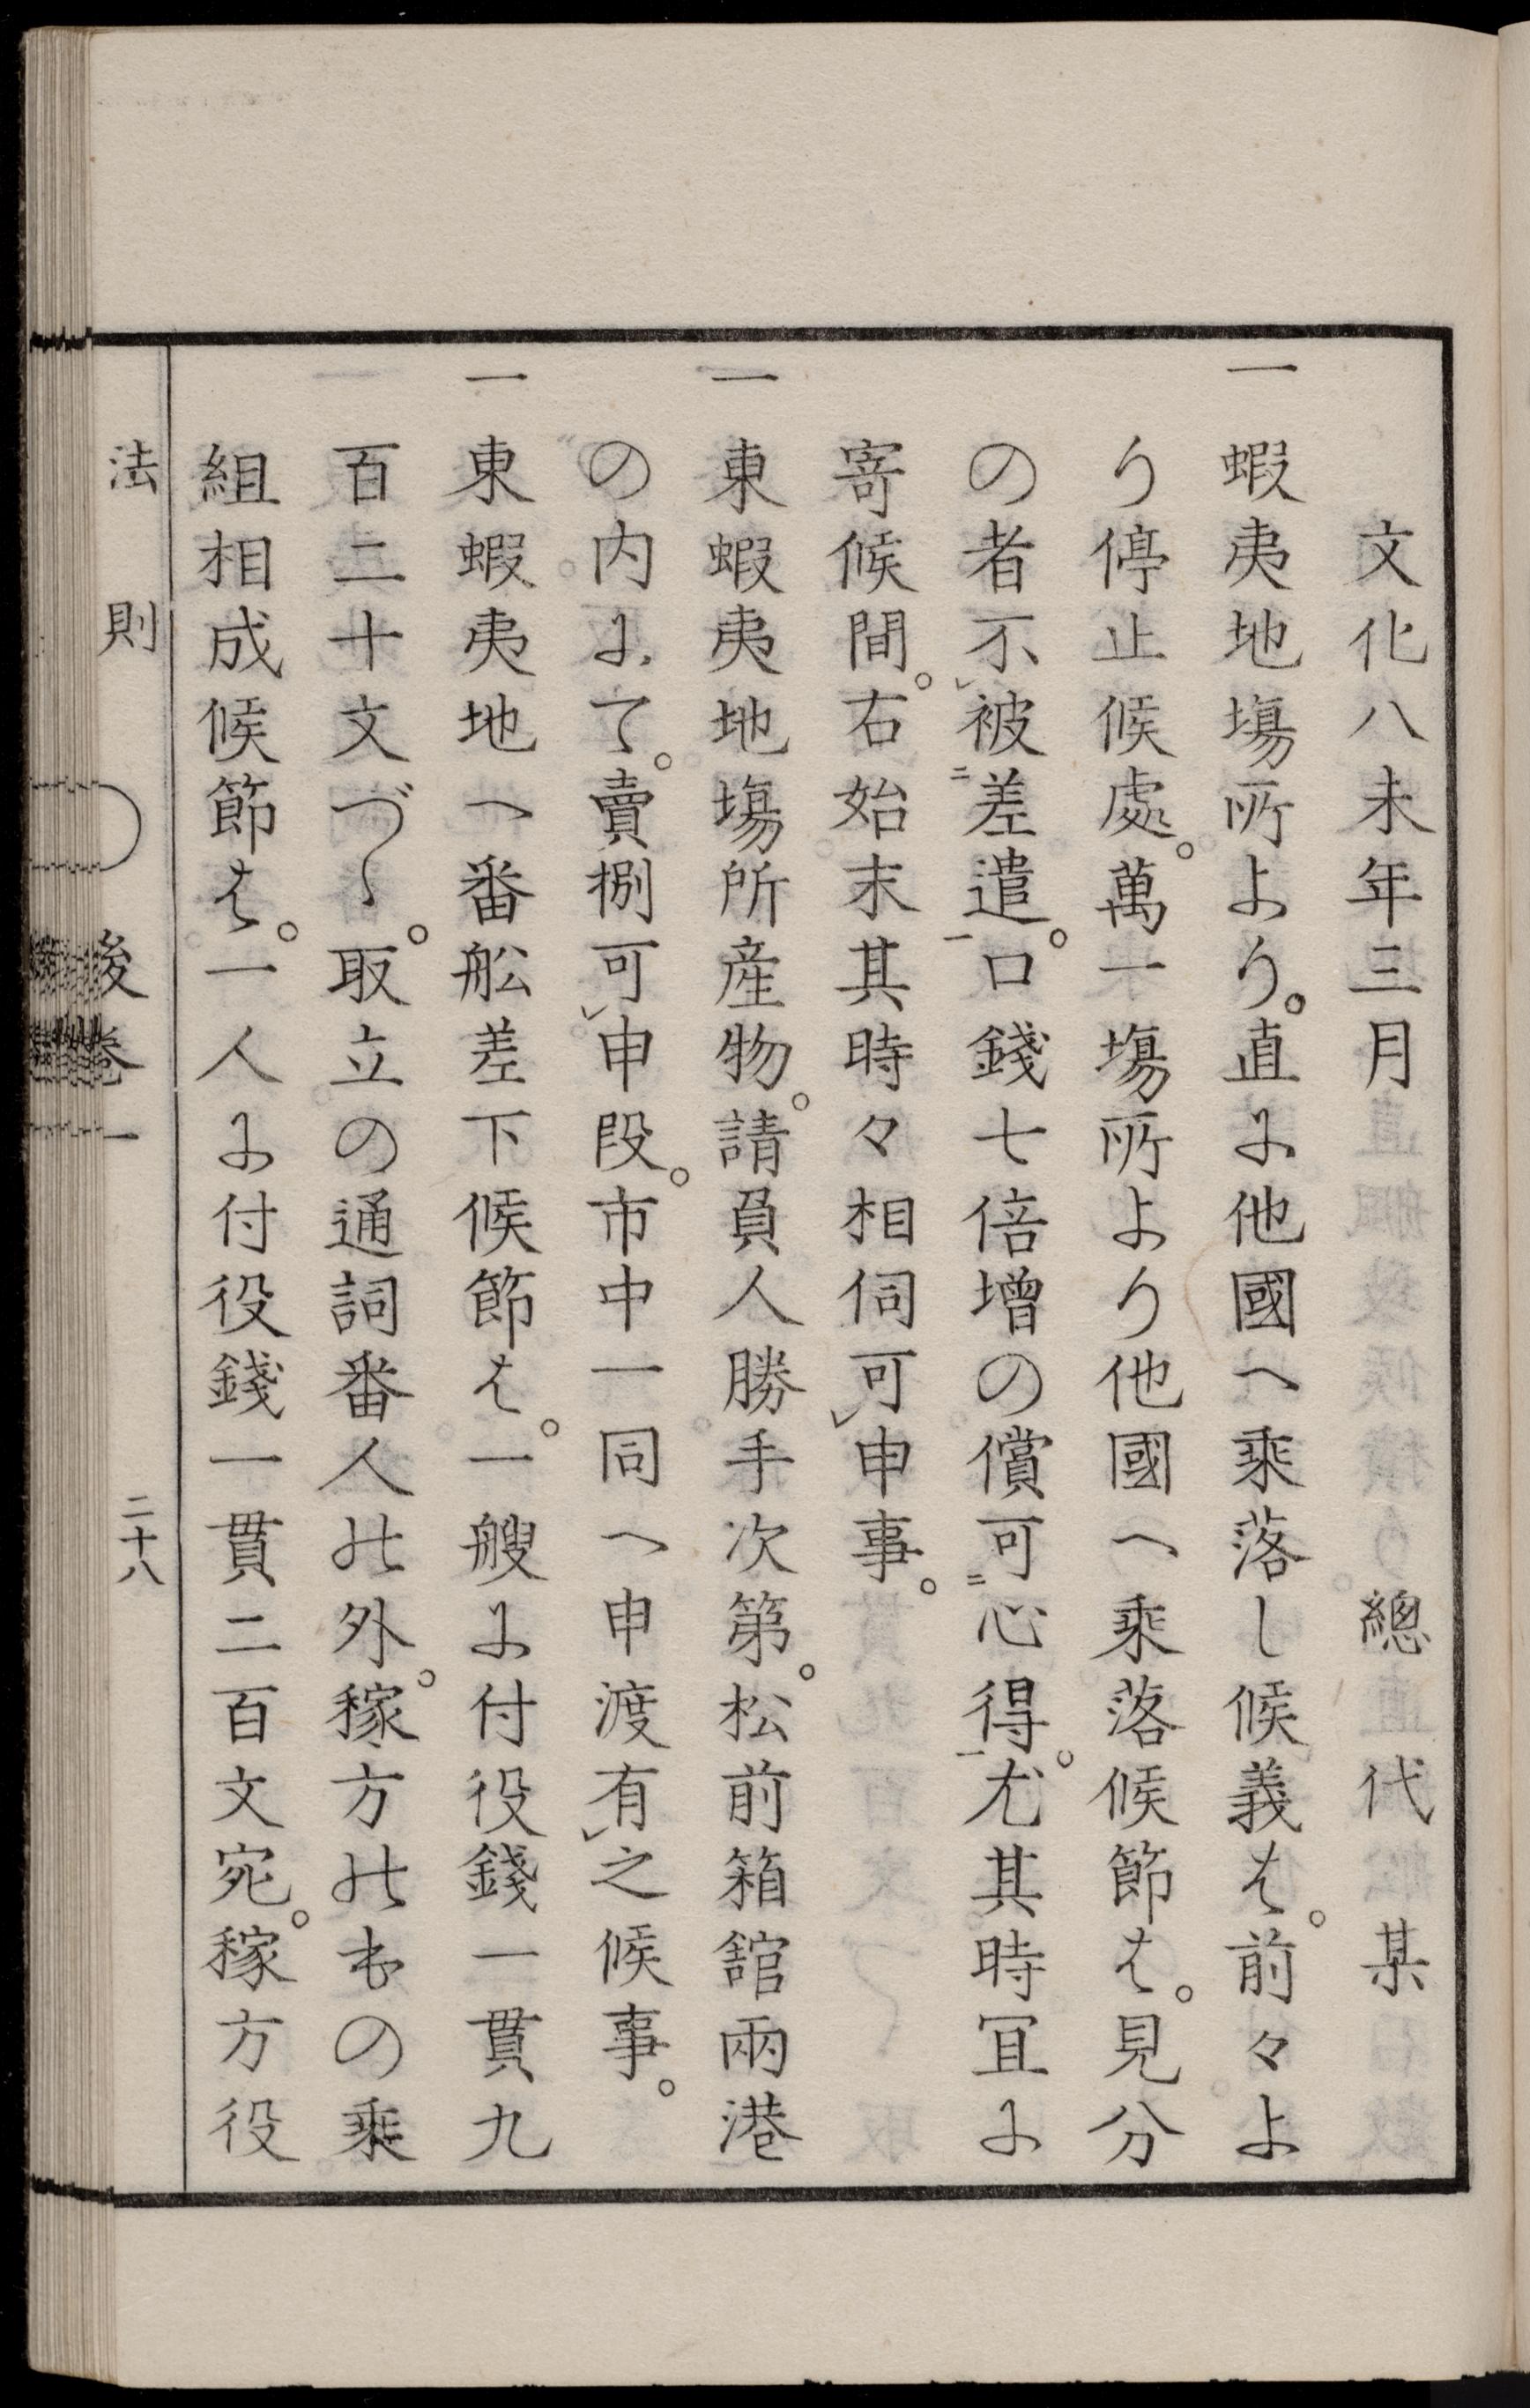 文化八未年三月 總代 某
一 蝦夷地塲所より。直に他國へ乘落し候義は。前々よ
り停止候處。萬一塲所より他國へ乘落候節は。見分
の者不㆑被㆓差遣㆒。口錢七倍增の償可㆓心得㆒。尤其時宜に
寄候間。右始末其時々相伺可㆑申事。
一 東蝦夷地塲所産物。請負人勝手次第。松前箱舘兩港
の内にて。賣捌可㆑申段。市中一同へ申渡有㆑之候事。
一 東蝦夷地へ番舩差下候節は。一艘に付役錢一貫九
百二十文づゝ。取立の通詞番人の外。稼方のものの乘
組相成候節は。一人に付役錢一貫二百文宛。稼方役
法則 後卷一 二十八